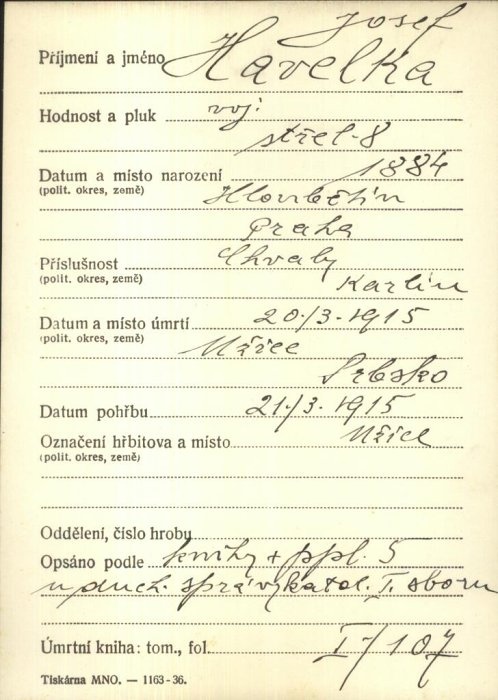 Josef
Příjmení a jméno Havelka
Hodnost a pluk voj.
střel. 8
Datum a místo narození 1884
(polit. okres, země) Hloubětín
Praha
Příslušnost Chvaly
(polit. okres, země) Karlín
Datum a místo úmrtí 20./3. 1915
(polit. okres, země) Užice
Srbsko
Datum pohřbu 21./3. 1915
Označení hřbitova a místo Užice
(polit. okres, země)
Oddělení, číslo hrobu
Opsáno podle knihy + ppl. 5
u duch. správy katol. I. sboru
Úmrtní kniha: tom., fol. I/107
Tiskárna MNO. — 1163-36.